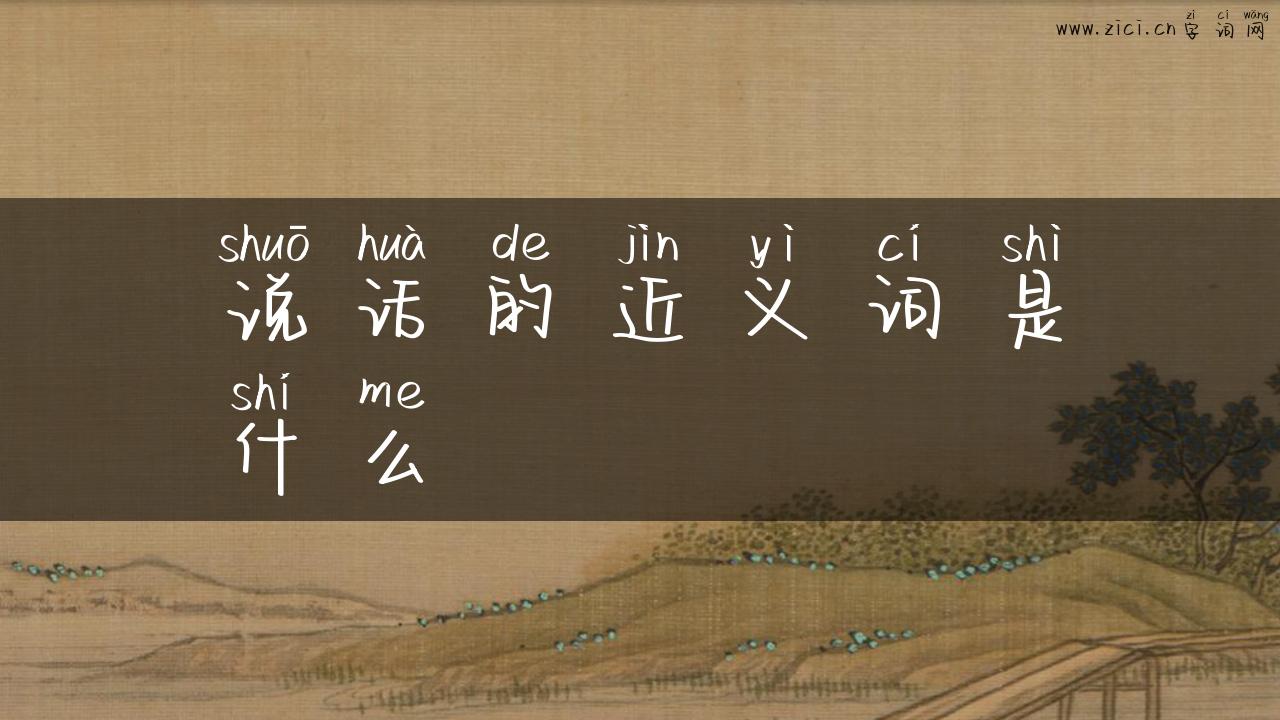 zì cí wǎng
www.zici.cn 字词网
shuō huà de jìn yì cí shì
说话的近义词是
shí me
什么